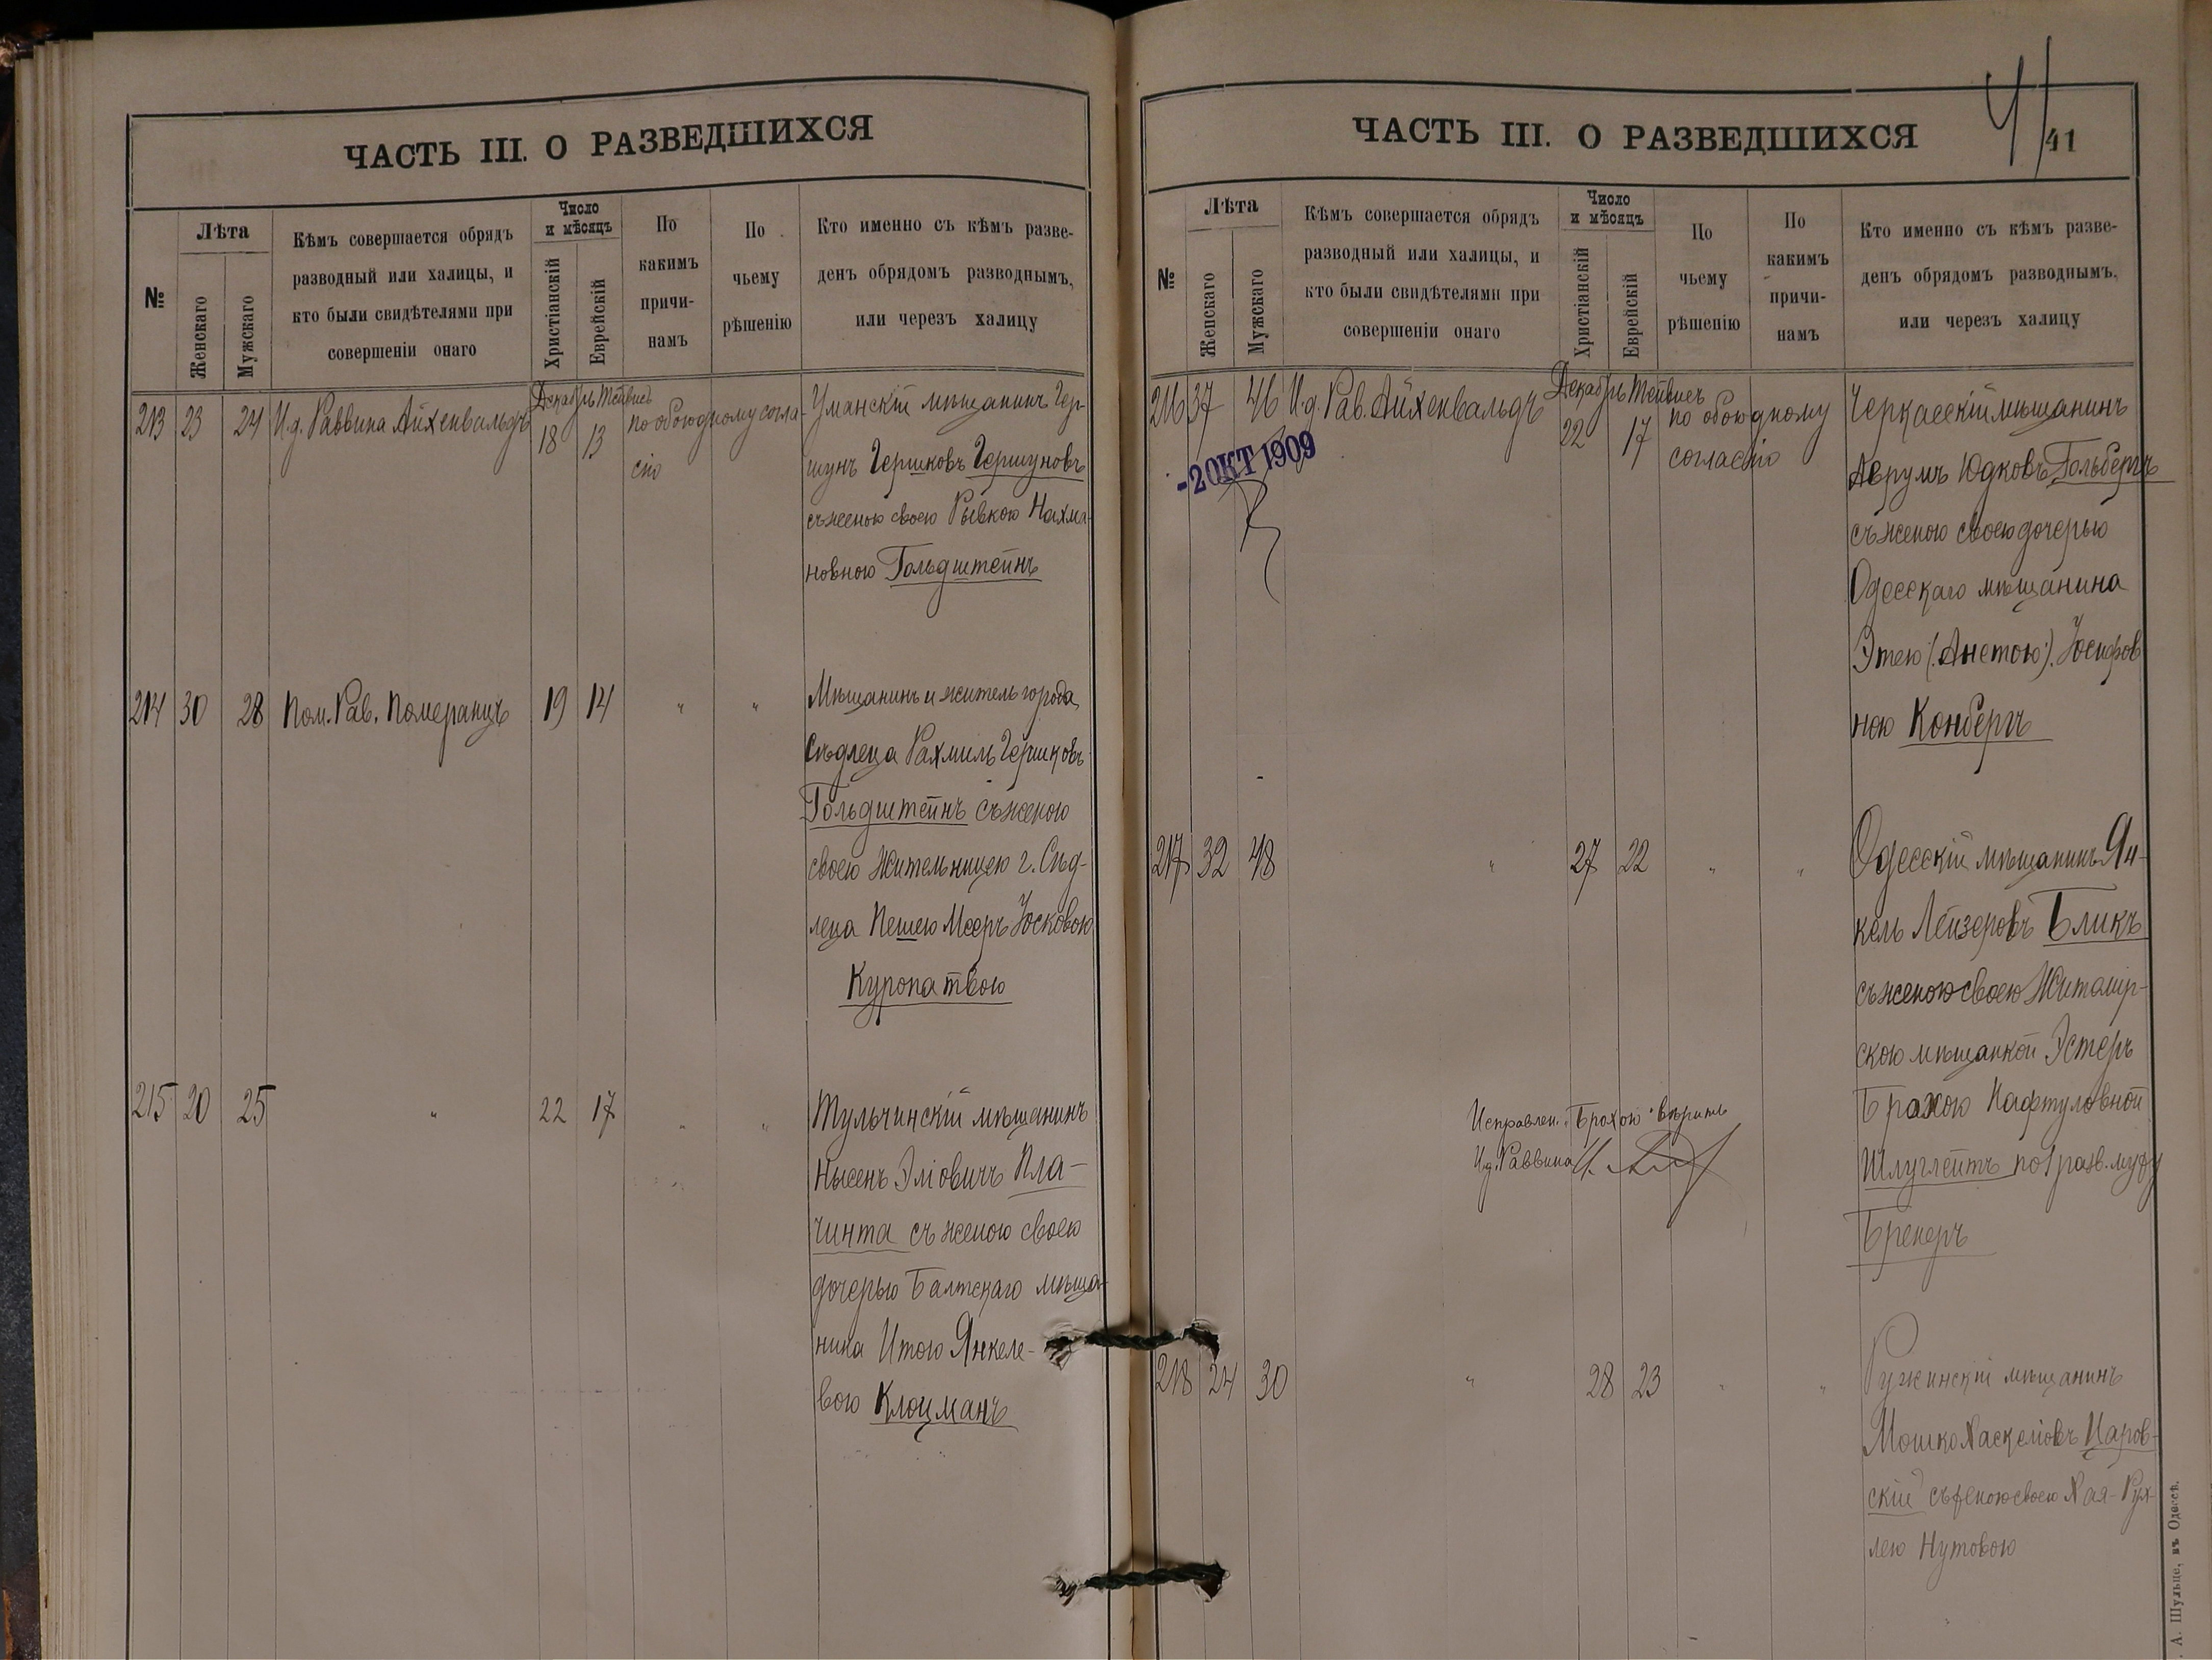 ЧАСТЬ III. О РАЗВЕДШИХСЯ
№
Лѣта
Женскаго
Мужскаго
Кѣмъ совершается обрядъ
разводный или халицы, и
кто были свидѣтелями при
совершеніи онаго
Число
и мѣсяцъ
Христіанскій
Еврейскій
По
какимъ
причи-
намъ
По
чьему
рѣшенію
Кто именно съ кѣмъ разве-
денъ обрядомъ разводнымъ,
или черезъ халицу
Декабрь Тейвисъ
213 23 24 И.д. Раввина Айхенвальдъ 18 13 по обоюдному согла-
сію
Уманскій мѣщанинъ Гер-
шунъ Гершковъ Гершуновъ
съ женою своею Рывкою Нахма-
новною Гольдштейнъ
214 30 28 Пом. Рав. Померанцъ 19 14 " "
Мѣщанинъ и житель города
Сѣдлеца Рахмиль Гершковъ
Гольдштейнъ съ женою
своею жительницею г. Сѣд-
леца Пешею Мееръ Іосковою
Куропатвою
215 20 25 " 22 17 " "
Тульчинскій мѣщанинъ
Нысенъ Эліовичъ Пла-
чинта съ женою своею
дочерью Балтскаго мѣща-
нина Итою Янкеле-
вою Клоцманъ
ЧАСТЬ III. О РАЗВЕДШИХСЯ
41
41
№
Лѣта
Женскаго
Мужскаго
Кѣмъ совершается обрядъ
разводный или халицы, и
кто были свидѣтелями при
совершеніи онаго
Число
и мѣсяцъ
Христіанскій
Еврейскій
По
чьему
рѣшенію
По
какимъ
причи-
намъ
Кто именно съ кѣмъ разве-
денъ обрядомъ разводнымъ,
или черезъ халицу
Декабрь Тейвисъ
216 37 46 И.д. Рав. Айхенвальдъ 22 17 по обоюдному
согласію
-2 ОКТ 1909
Черкасскій мѣщанинъ
Аврумъ Юдковъ Гольбергъ
съ женою своею дочерью
Одесскаго мѣщанина
Этею (Анетою) Іосифов
ною Конбергъ
217 32 48 " 27 22 " "
Одесскій мѣщанинъ Ян-
кель Лейзеровъ Бликъ
съ женою своею Житомір-
скою мѣщанкой Эстеръ
Брахою Нафтуловной
Шлуглейтъ по 1 разв. мужу
Бренеръ
Исправлен. "Брахою" вѣрить
И.д. Раввина
218 24 30 " 28 23 " "
Ружинскій мѣщанинъ
Мошко Хаскеліовъ Царов-
скій съ женою своею Хая-Рух-
лею Нутовою
А. Шульце, въ Одессѣ.